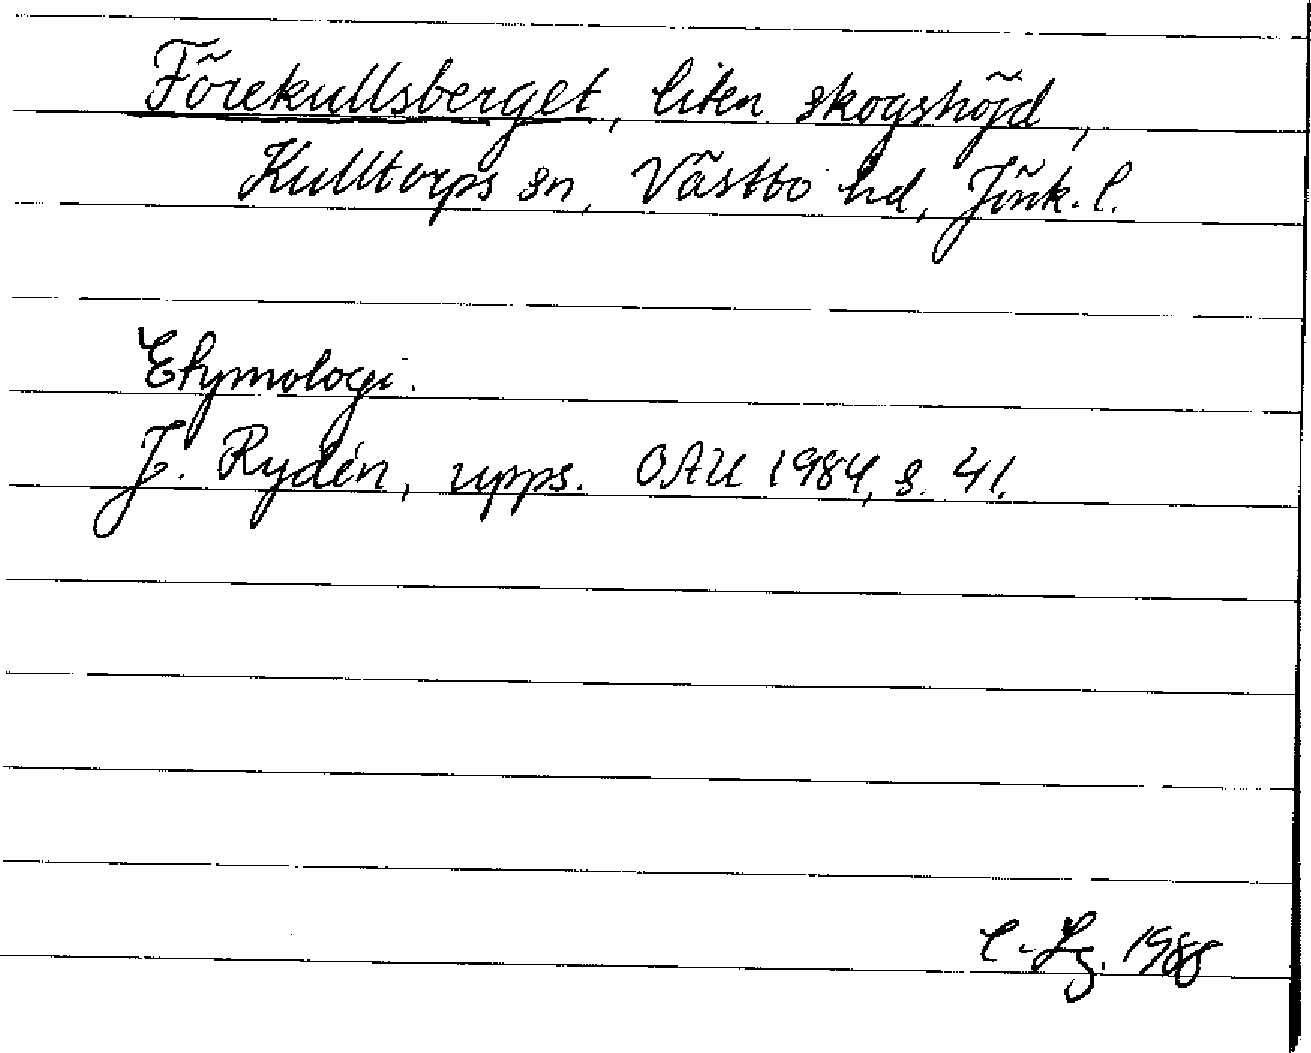 Förekullsberget, liten skogshöjd,
Kulltorps sn, Västbo hd, Jönk. l.
Etymologi.
J. Rydén, upps. OAU 1984, s. 41.
C-Lg. 1988